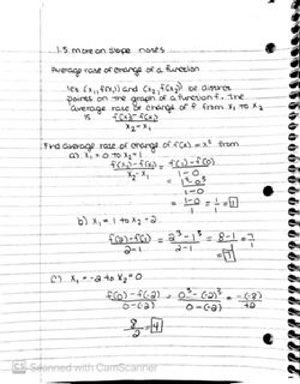 1.5 more on slope notes
Average rate of change of a function
let (x₁, f(x₁)) and (x₂, f(x₂)) be distinct
points on the graph of a function f. The
average rate of change of f from x₁ to x₂
is f(x₂)-f(x₁)
x₂-x₁
Find average rate of change of f(x) = x³ from
a) x₁ = 0 to x₂ = 1
f(x₂)-f(x₁) = f(1)-f(0)
x₂-x₁ 1-0
= 1³-0³
1-0
= 1-0 = 1 = 1
1 1
b) x₁ = 1 to x₂ = 2
f(2)-f(1) = 2³-1³ = 8-1 = 7
2-1 2-1 1
= 7
c) x₁ = -2 to x₂ = 0
f(0)-f(-2) = 0³-(-2)³ = -(-8)
0-(-2) 0-(-2) +2
8 = 4
2
CS Scanned with CamScanner